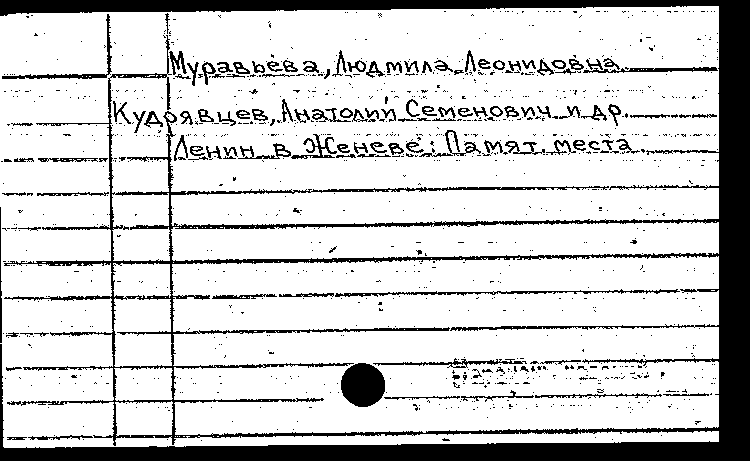 Муравьева, Людмила Леонидовна.
Кудрявцев, Анатолий Семенович и др.
Ленин в Женеве: Памят. места.